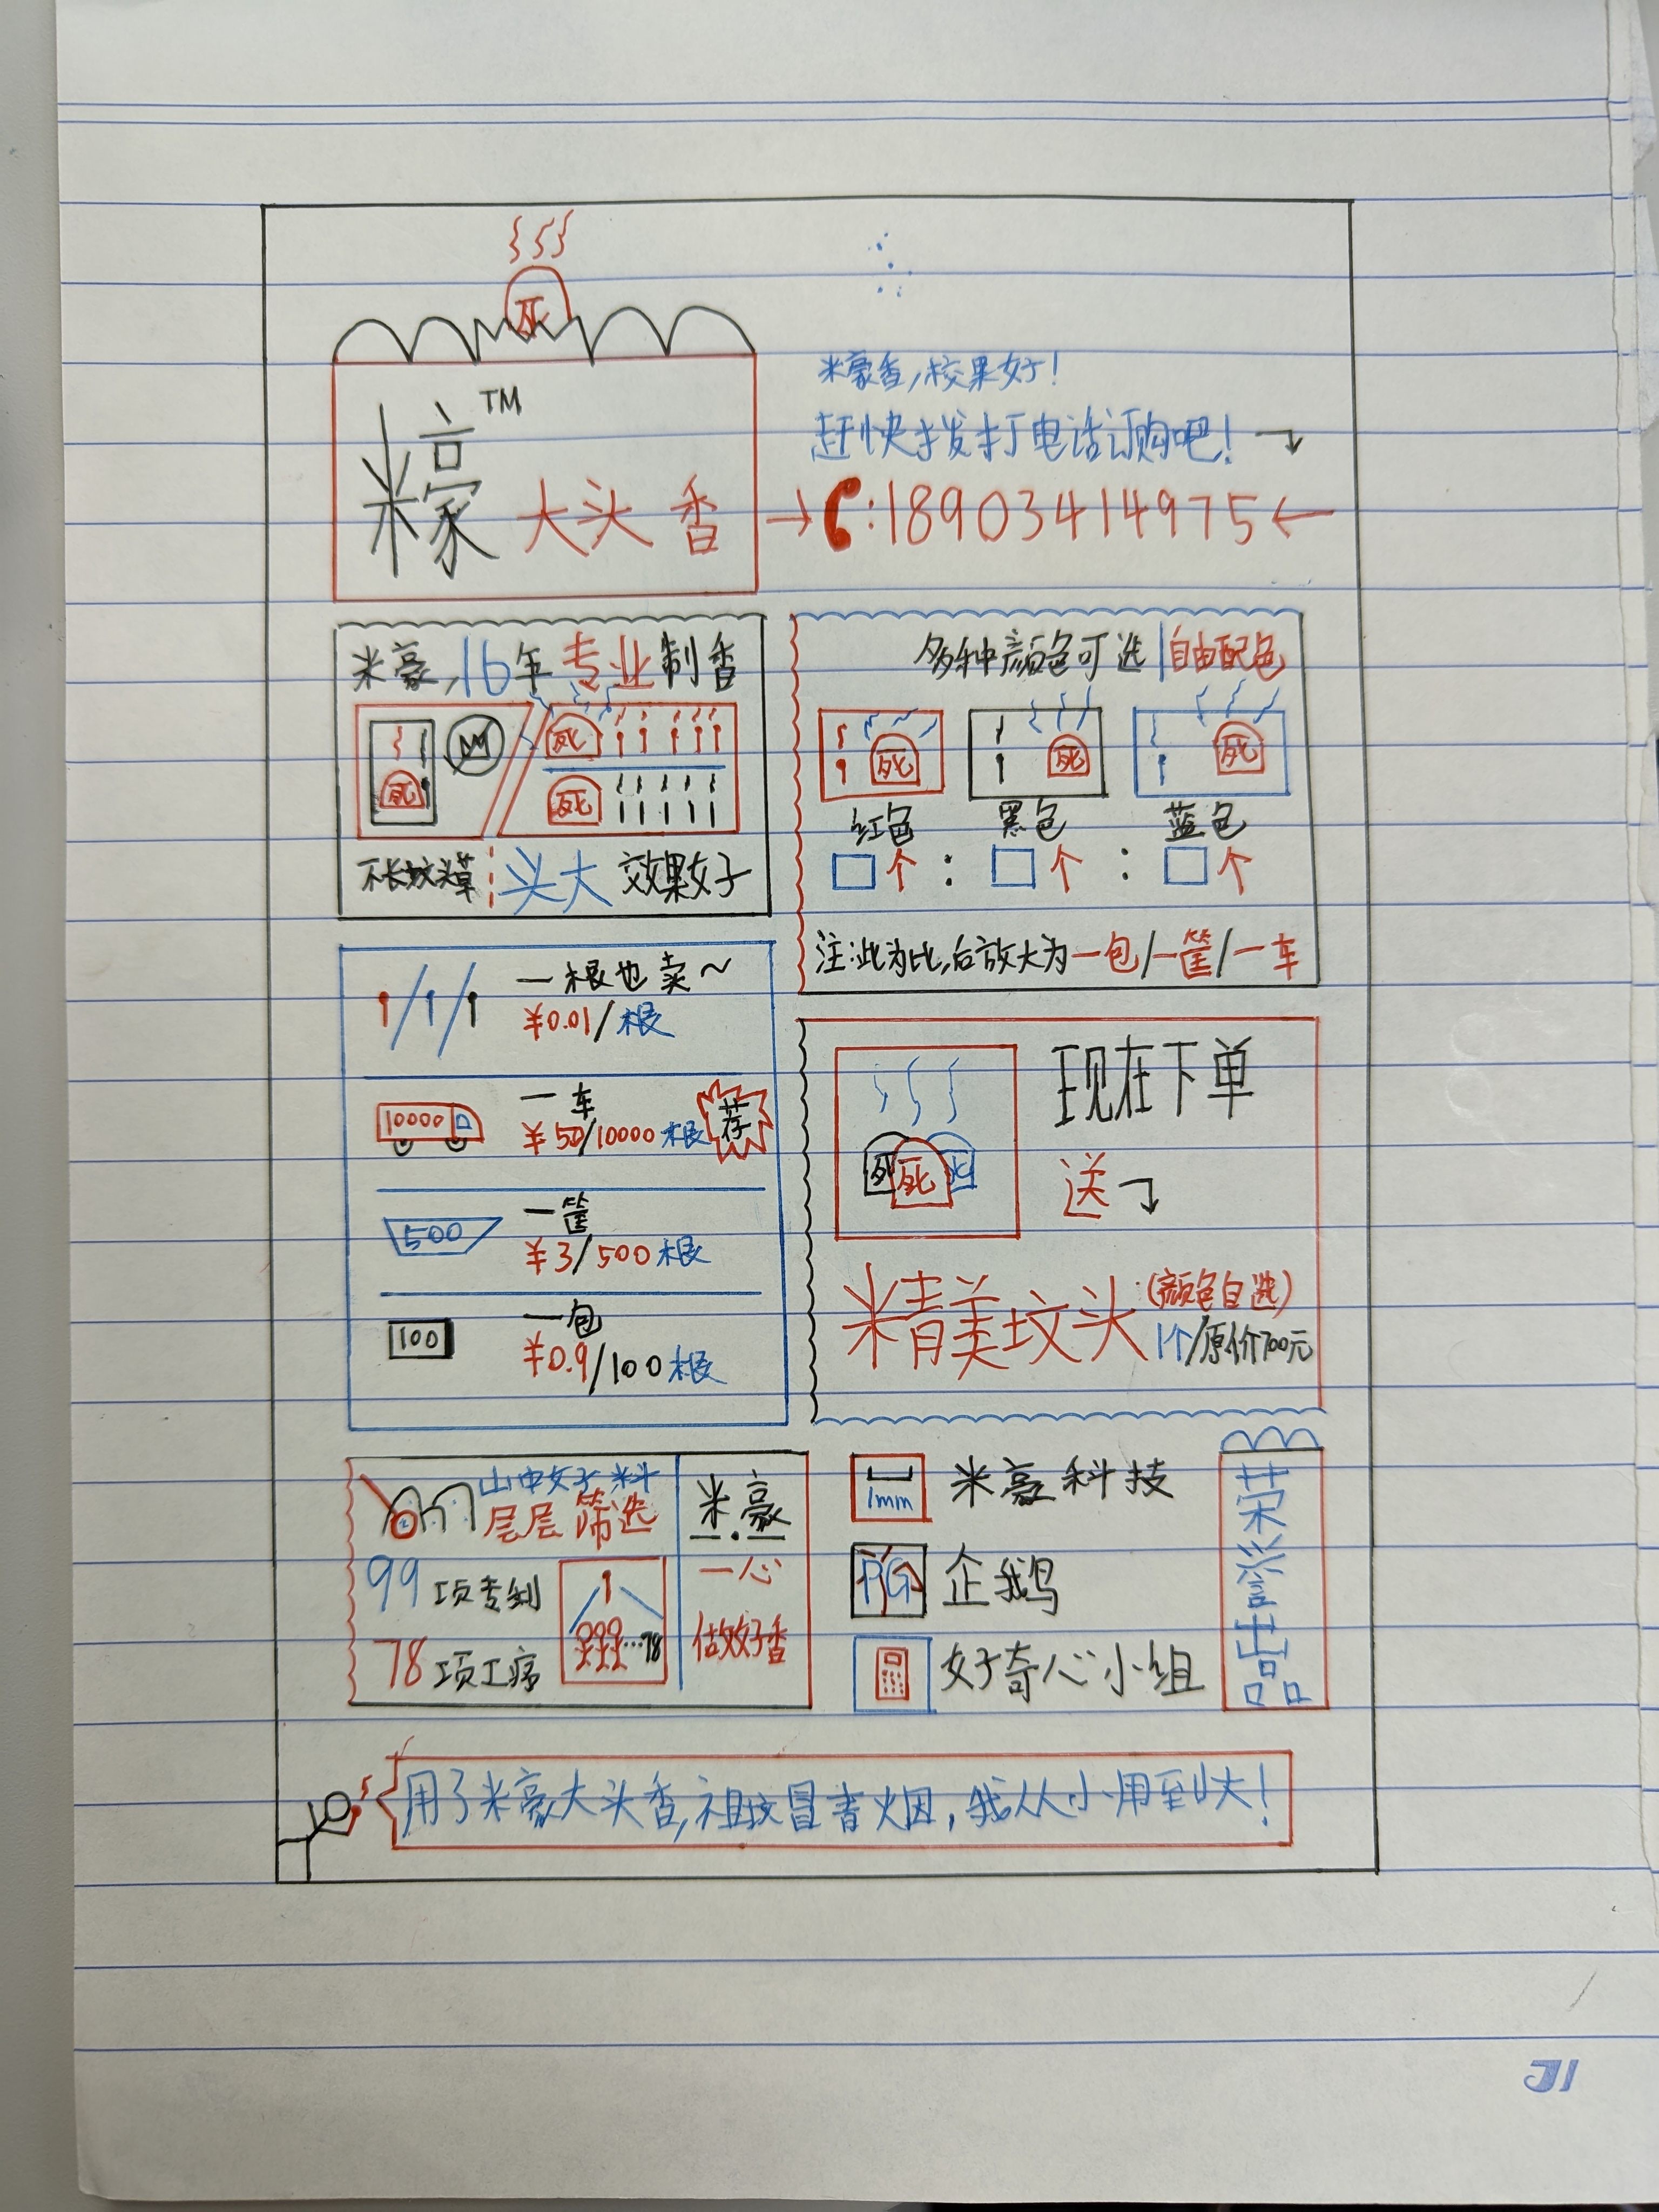 死
米豪™ 大头香
米豪香,校果好!
赶快拨打电话订购吧!
:18903414975
米豪,16年专业制香
死
死
死
不长坟头草 头大 效果好
多种颜色可选|自由配色
死 死 死
红色 黑色 蓝色
个 : 个 : 个
注:此为比,后放大为一包/一筐/一车
一根也卖~
¥0.01/根
10000
一车
¥50/10000根
荐
500
一筐
¥3/500根
100
一包
¥0.9/100根
现在下单
送
死 死 死
精美坟头(颜色自选)
1个/原价700元
山中好料
层层筛选
99项专利
78项工序
...78
米豪
一心
做好香
1mm 米豪科技
PG 企鹅
好奇心小组
荣誉出品
用了米豪大头香,祖坟冒青烟,我从小用到大!
JI